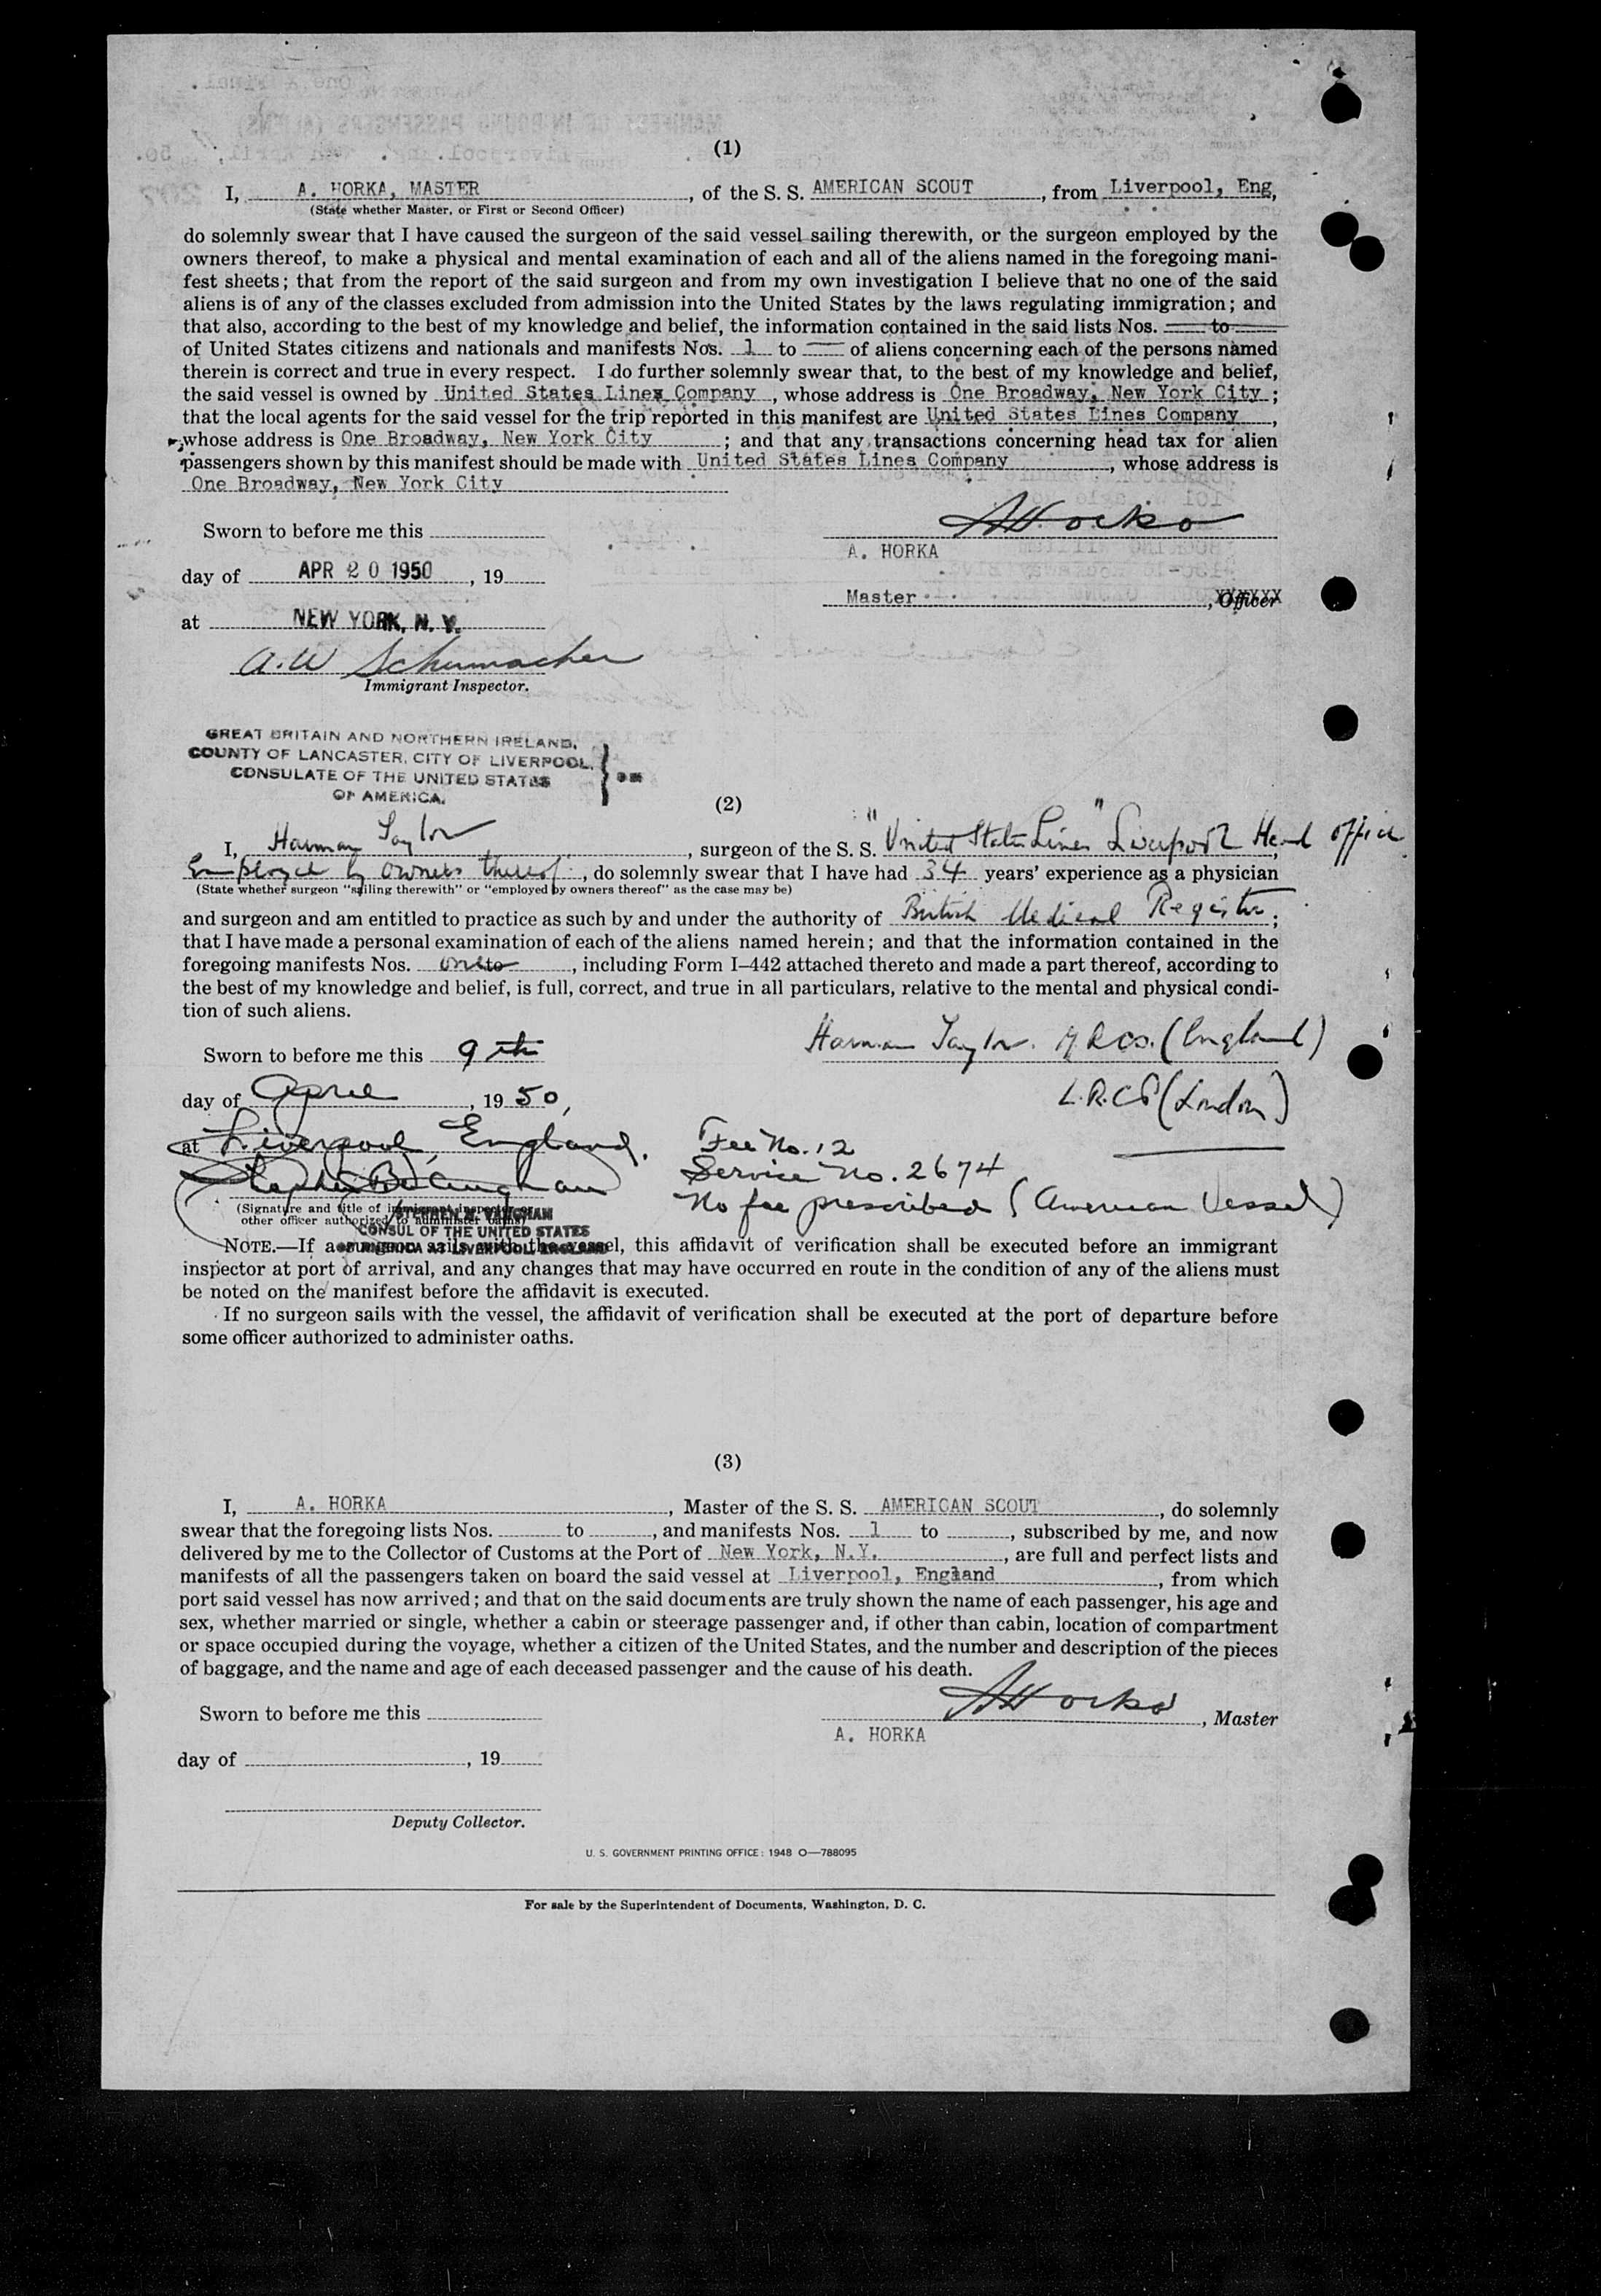 (1)
I, A. HORKA, MASTER, of the S. S. AMERICAN SCOUT, from Liverpool, Eng,
(State whether Master, or First or Second Officer)
do solemnly swear that I have caused the surgeon of the said vessel sailing therewith, or the surgeon employed by the
owners thereof, to make a physical and mental examination of each and all of the aliens named in the foregoing mani-
fest sheets; that from the report of the said surgeon and from my own investigation I believe that no one of the said
aliens is of any of the classes excluded from admission into the United States by the laws regulating immigration; and
that also, according to the best of my knowledge and belief, the information contained in the said lists Nos. — to —
of United States citizens and nationals and manifests Nos. 1 to — of aliens concerning each of the persons named
therein is correct and true in every respect. I do further solemnly swear that, to the best of my knowledge and belief,
the said vessel is owned by United States Lines Company, whose address is One Broadway, New York City;
that the local agents for the said vessel for the trip reported in this manifest are United States Lines Company,
whose address is One Broadway, New York City; and that any transactions concerning head tax for alien
passengers shown by this manifest should be made with United States Lines Company, whose address is
One Broadway, New York City
Sworn to before me this
A Horka
A. HORKA
day of APR 20 1950, 19
Master, Officer
at NEW YORK, N. Y.
A. W Schumacher
Immigrant Inspector.
GREAT BRITAIN AND NORTHERN IRELAND,
COUNTY OF LANCASTER, CITY OF LIVERPOOL,
CONSULATE OF THE UNITED STATES
OF AMERICA.
(2)
I, Harman Taylor, surgeon of the S. S. "United States Lines" Liverpool Head office
Employed by owners thereof, do solemnly swear that I have had 34 years' experience as a physician
(State whether surgeon "sailing therewith" or "employed by owners thereof" as the case may be)
and surgeon and am entitled to practice as such by and under the authority of British Medical Register;
that I have made a personal examination of each of the aliens named herein; and that the information contained in the
foregoing manifests Nos. one to, including Form I–442 attached thereto and made a part thereof, according to
the best of my knowledge and belief, is full, correct, and true in all particulars, relative to the mental and physical condi-
tion of such aliens.
Harman Taylor. M.R.C.S. (England)
Sworn to before me this 9th
L.R.C.P (London)
day of April, 1950,
at Liverpool, England.
Fee No. 12
Service No. 2674
Stephen B. Vaughan
No fee prescribed (American Vessel)
(Signature and title of immigrant inspector or
other officer authorized to administer oaths)
STEPHEN B. VAUGHAN
CONSUL OF THE UNITED STATES
OF AMERICA AT LIVERPOOL, ENGLAND
NOTE.—If a surgeon sails with the vessel, this affidavit of verification shall be executed before an immigrant
inspector at port of arrival, and any changes that may have occurred en route in the condition of any of the aliens must
be noted on the manifest before the affidavit is executed.
If no surgeon sails with the vessel, the affidavit of verification shall be executed at the port of departure before
some officer authorized to administer oaths.
(3)
I, A. HORKA, Master of the S. S. AMERICAN SCOUT, do solemnly
swear that the foregoing lists Nos. to, and manifests Nos. 1 to, subscribed by me, and now
delivered by me to the Collector of Customs at the Port of New York, N.Y., are full and perfect lists and
manifests of all the passengers taken on board the said vessel at Liverpool, England, from which
port said vessel has now arrived; and that on the said documents are truly shown the name of each passenger, his age and
sex, whether married or single, whether a cabin or steerage passenger and, if other than cabin, location of compartment
or space occupied during the voyage, whether a citizen of the United States, and the number and description of the pieces
of baggage, and the name and age of each deceased passenger and the cause of his death.
A Horka
Sworn to before me this
, Master
A. HORKA
day of, 19
Deputy Collector.
U. S. GOVERNMENT PRINTING OFFICE: 1948 O—788095
For sale by the Superintendent of Documents, Washington, D. C.